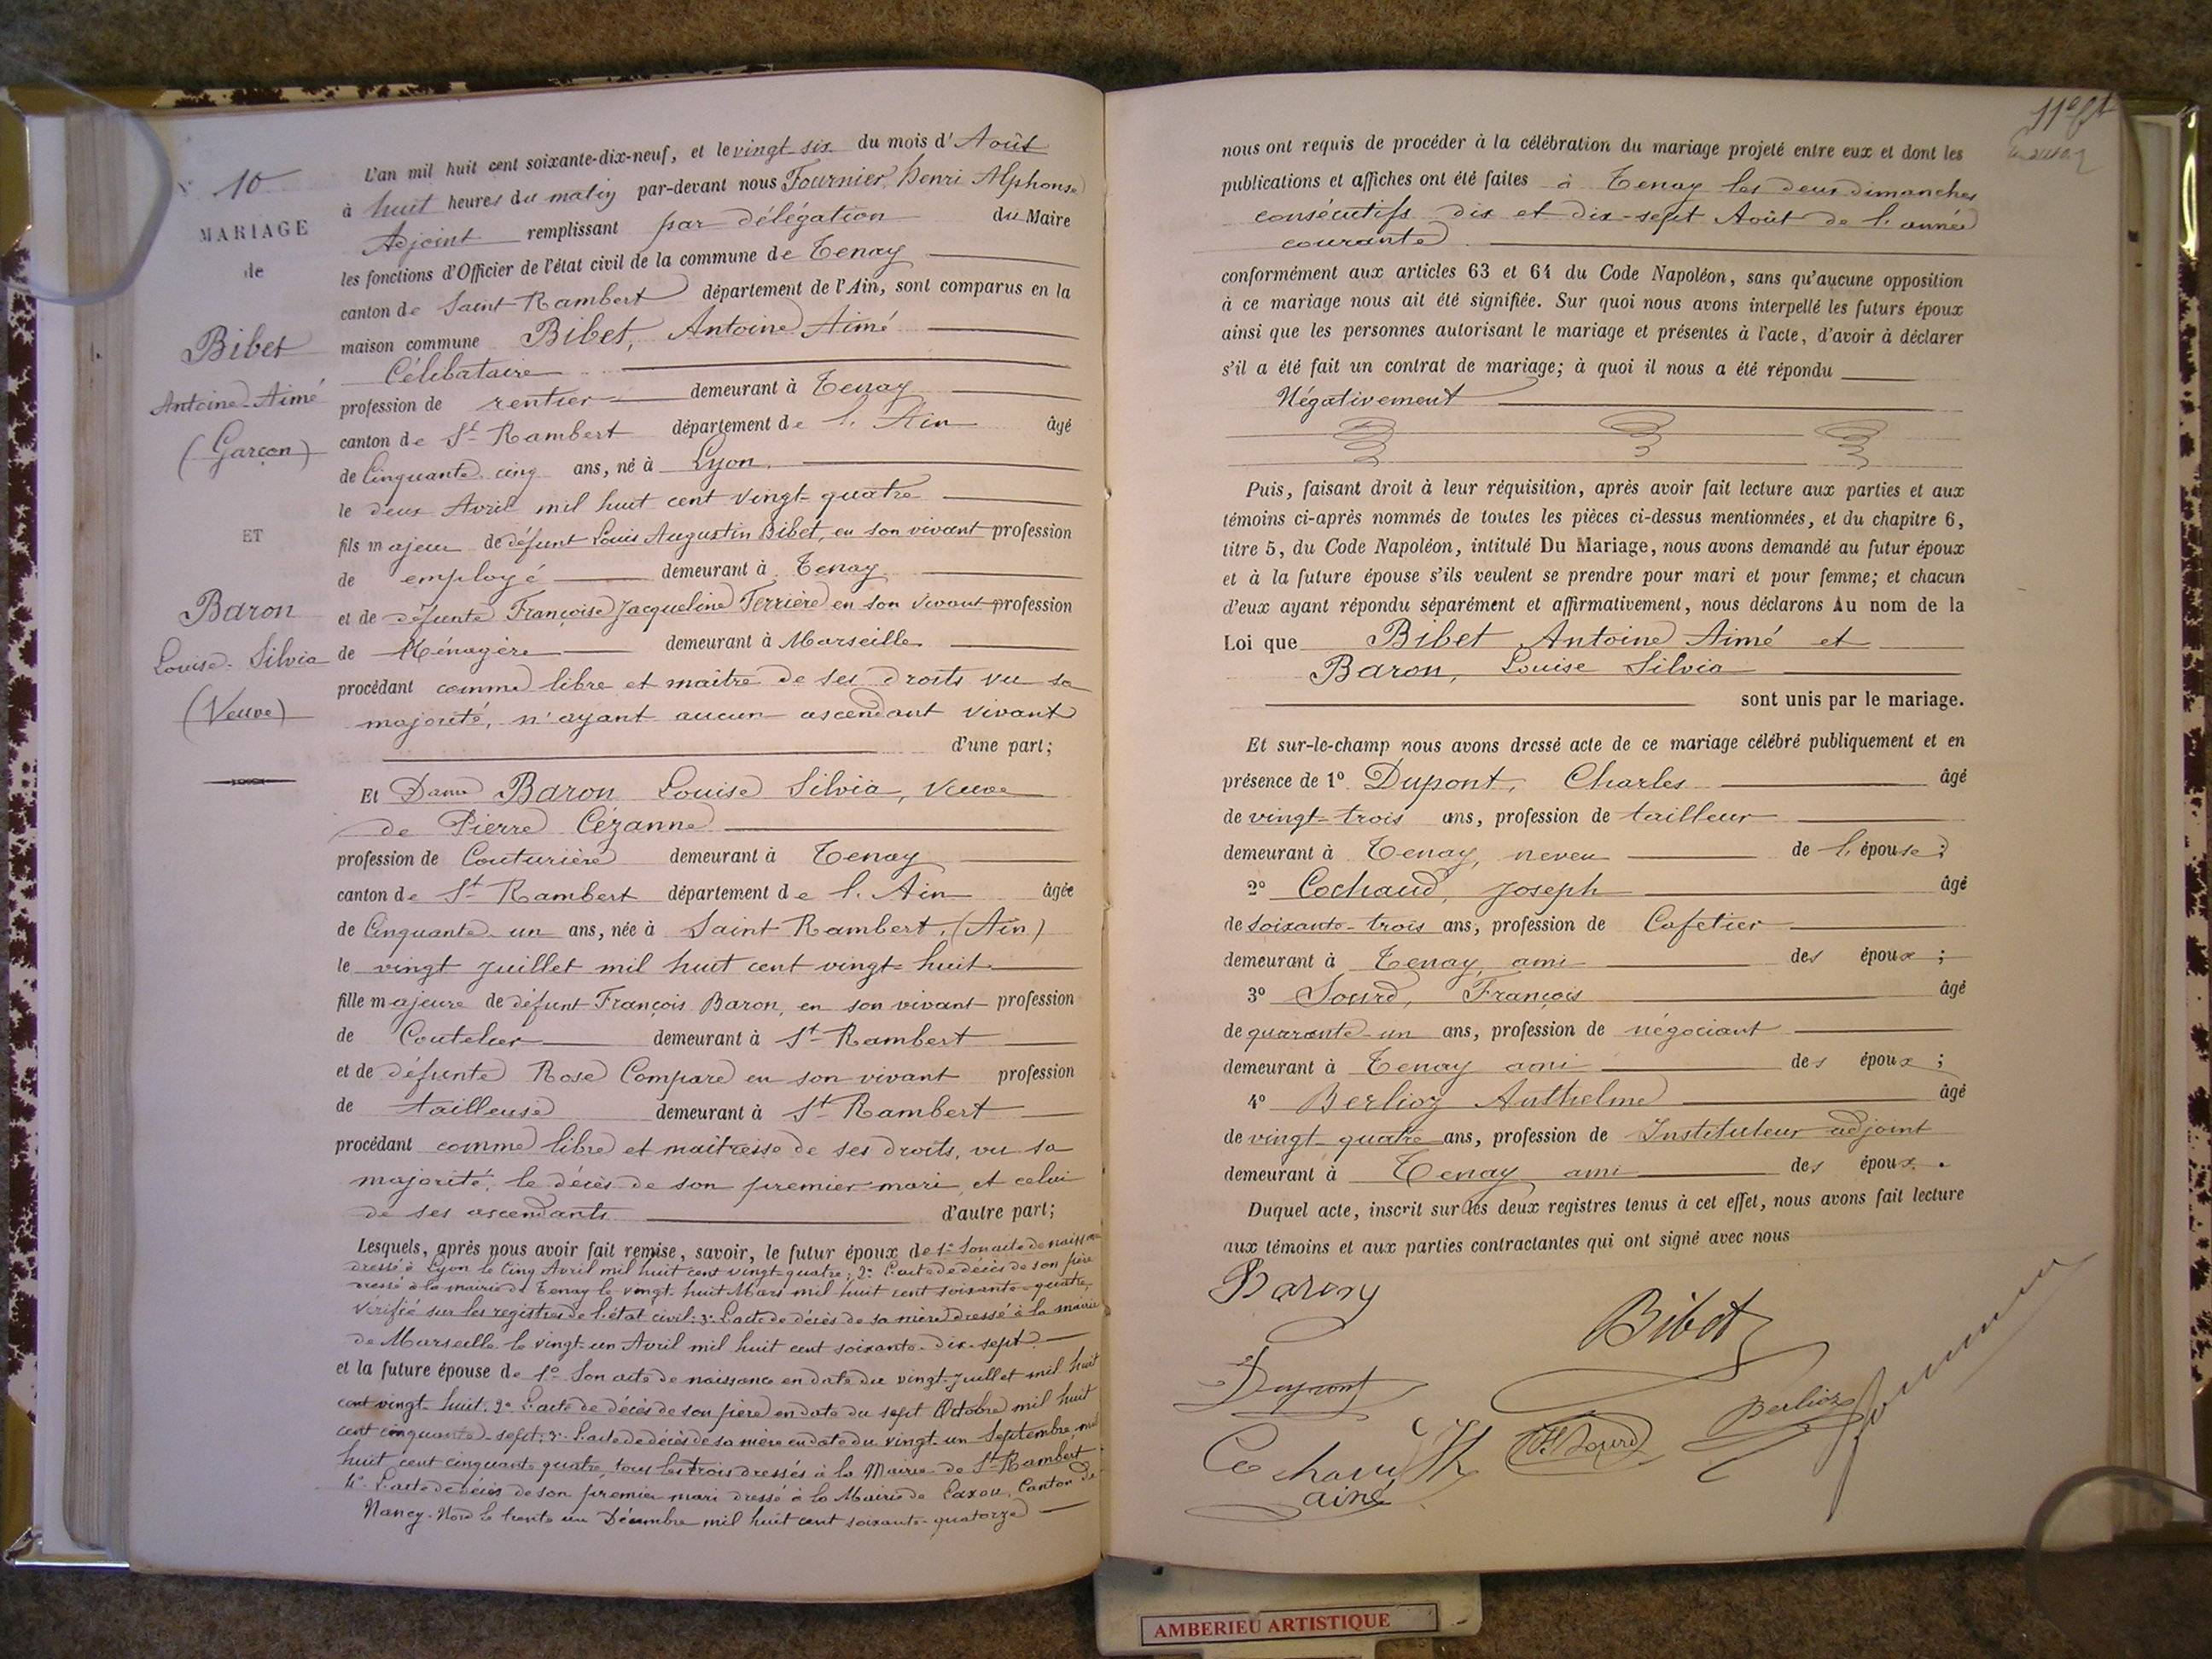 N° 10
MARIAGE
de
Bibet
Antoine-Aimé
(Garçon)
ET
Baron
Louise-Silvia
(Veuve)
L'an mil huit cent soixante-dix-neuf, et le vingt-six du mois d'Août
à huit heures du matin par-devant nous Fournier, Henri Alphonse
Adjoint remplissant par délégation du Maire
les fonctions d'Officier de l'état civil de la commune de Tenay
canton de Saint-Rambert département de l'Ain, sont comparus en la
maison commune Bibet, Antoine Aimé
Célibataire
profession de rentier demeurant à Tenay
canton de St-Rambert département de l'Ain âgé
de Cinquante-cinq ans, né à Lyon
le deux Avril mil huit cent vingt-quatre
fils majeur de défunt Louis Augustin Bibet, en son vivant profession
de employé demeurant à Tenay
et de défunte Françoise Jacqueline Terrière en son vivant profession
de Ménagère demeurant à Marseille
procédant comme libre et maître de ses droits vu sa
majorité, n'ayant aucun ascendant vivant
d'une part;
Et Dame Baron Louise Silvia, Veuve
de Pierre Cézanne
profession de Couturière demeurant à Tenay
canton de St-Rambert département de l'Ain âgée
de Cinquante-un ans, née à Saint-Rambert, (Ain)
le vingt Juillet mil huit cent vingt-huit
fille majeure de défunt François Baron, en son vivant profession
de Coutelier demeurant à St-Rambert
et de défunte Rose Compare en son vivant profession
de tailleuse demeurant à St-Rambert
procédant comme libre et maîtresse de ses droits, vu sa
majorité, le décès de son premier mari, et celui
de ses ascendants d'autre part;
Lesquels, après nous avoir fait remise, savoir, le futur époux de 1° Son acte de naissance
dressé à Lyon le cinq Avril mil huit cent vingt-quatre; 2° L'acte de décès de son père
dressé à la mairie de Tenay le vingt-huit Mars mil huit cent soixante-quatre,
vérifié sur les registres de l'état civil; 3° L'acte de décès de sa mère dressé à la mairie
de Marseille le vingt-un Avril mil huit cent soixante-dix-sept
et la future épouse de 1° Son acte de naissance en date du vingt-Juillet mil huit
cent vingt-huit; 2° L'acte de décès de son père en date du sept Octobre mil huit
cent cinquante-sept; 3° L'acte de décès de sa mère en date du vingt-un Septembre mil
huit cent cinquante quatre, tous les trois dressés à la Mairie de St-Rambert
4° L'acte de décès de son premier mari dressé à la Mairie de Laxou, Canton de
Nancy-Nord le trente un Décembre mil huit cent soixante-quatorze
11e ft
nous ont requis de procéder à la célébration du mariage projeté entre eux et dont les
publications et affiches ont été faites à Tenay les deux dimanches
consécutifs dix et dix-sept Août de l'année
courante
conformément aux articles 63 et 64 du Code Napoléon, sans qu'aucune opposition
à ce mariage nous ait été signifiée. Sur quoi nous avons interpellé les futurs époux
ainsi que les personnes autorisant le mariage et présentes à l'acte, d'avoir à déclarer
s'il a été fait un contrat de mariage; à quoi il nous a été répondu
Négativement
Puis, faisant droit à leur réquisition, après avoir fait lecture aux parties et aux
témoins ci-après nommés de toutes les pièces ci-dessus mentionnées, et du chapitre 6,
titre 5, du Code Napoléon, intitulé Du Mariage, nous avons demandé au futur époux
et à la future épouse s'ils veulent se prendre pour mari et pour femme; et chacun
d'eux ayant répondu séparément et affirmativement, nous déclarons Au nom de la
Loi que Bibet Antoine Aimé et
Baron, Louise Silvia
sont unis par le mariage.
Et sur-le-champ nous avons dressé acte de ce mariage célébré publiquement et en
présence de 1° Dupont, Charles âgé
de vingt-trois ans, profession de tailleur
demeurant à Tenay, neveu de l'épouse;
2° Cochaud, Joseph âgé
de soixante-trois ans, profession de Cafetier
demeurant à Tenay, ami des époux;
3° Sourd, François âgé
de quarante-un ans, profession de négociant
demeurant à Tenay ami des époux;
4° Berlioz Anthelme âgé
de vingt-quatre ans, profession de Instituteur-adjoint
demeurant à Tenay ami des époux.
Duquel acte, inscrit sur les deux registres tenus à cet effet, nous avons fait lecture
aux témoins et aux parties contractantes qui ont signé avec nous
Baron
Bibet
Dupont
Berlioz
Fournier
Cochaud Jh
ainé
F. Sourd
AMBERIEU ARTISTIQUE